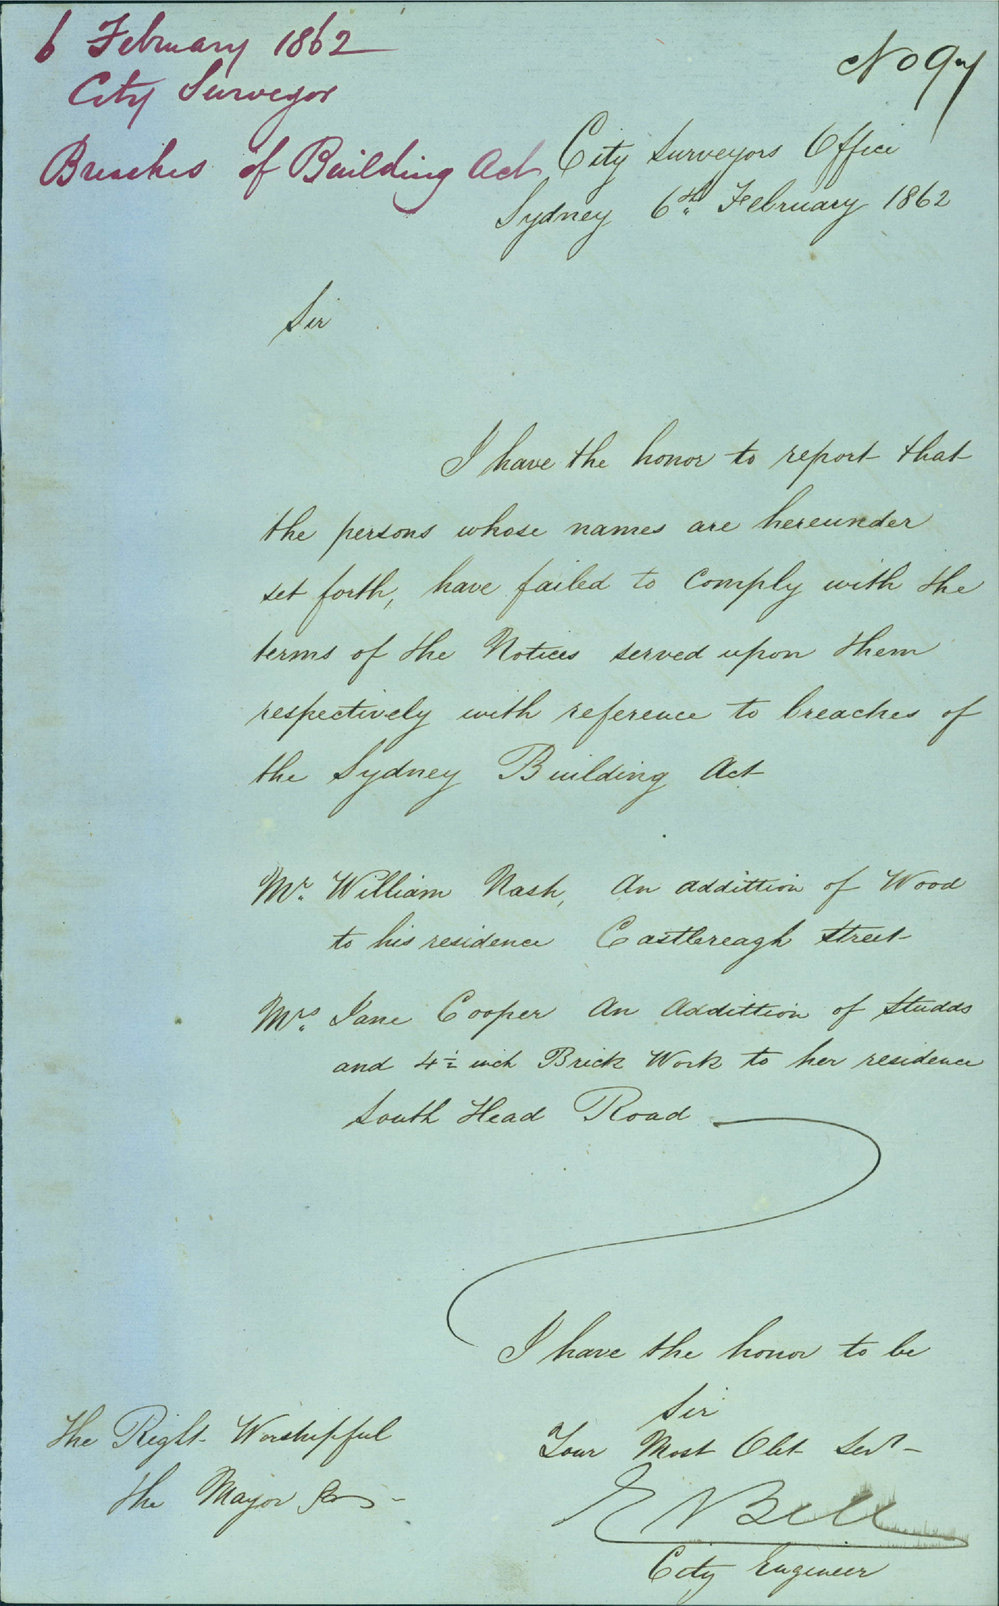 6 February 1862
City Surveyor
Breaches of Building Act
No 97
City Surveyors Office
Sydney 6th February 1862
Sir
I have the honor to report that
the persons whose names are hereunder
set forth, have failed to comply with the
terms of the Notices served upon them
respectively with reference to breaches of
the Sydney Building Act
Mr. William Nash, An addittion of Wood
to his residence Castlereagh Street
Mrs. Jane Cooper An Addittion of Studds
and 4½ inch Brick Work to her residence
South Head Road
I have the honor to be
Sir
Your Most Obt Servt
E Bell
City Engineer
The Right Worshipful
the Mayor